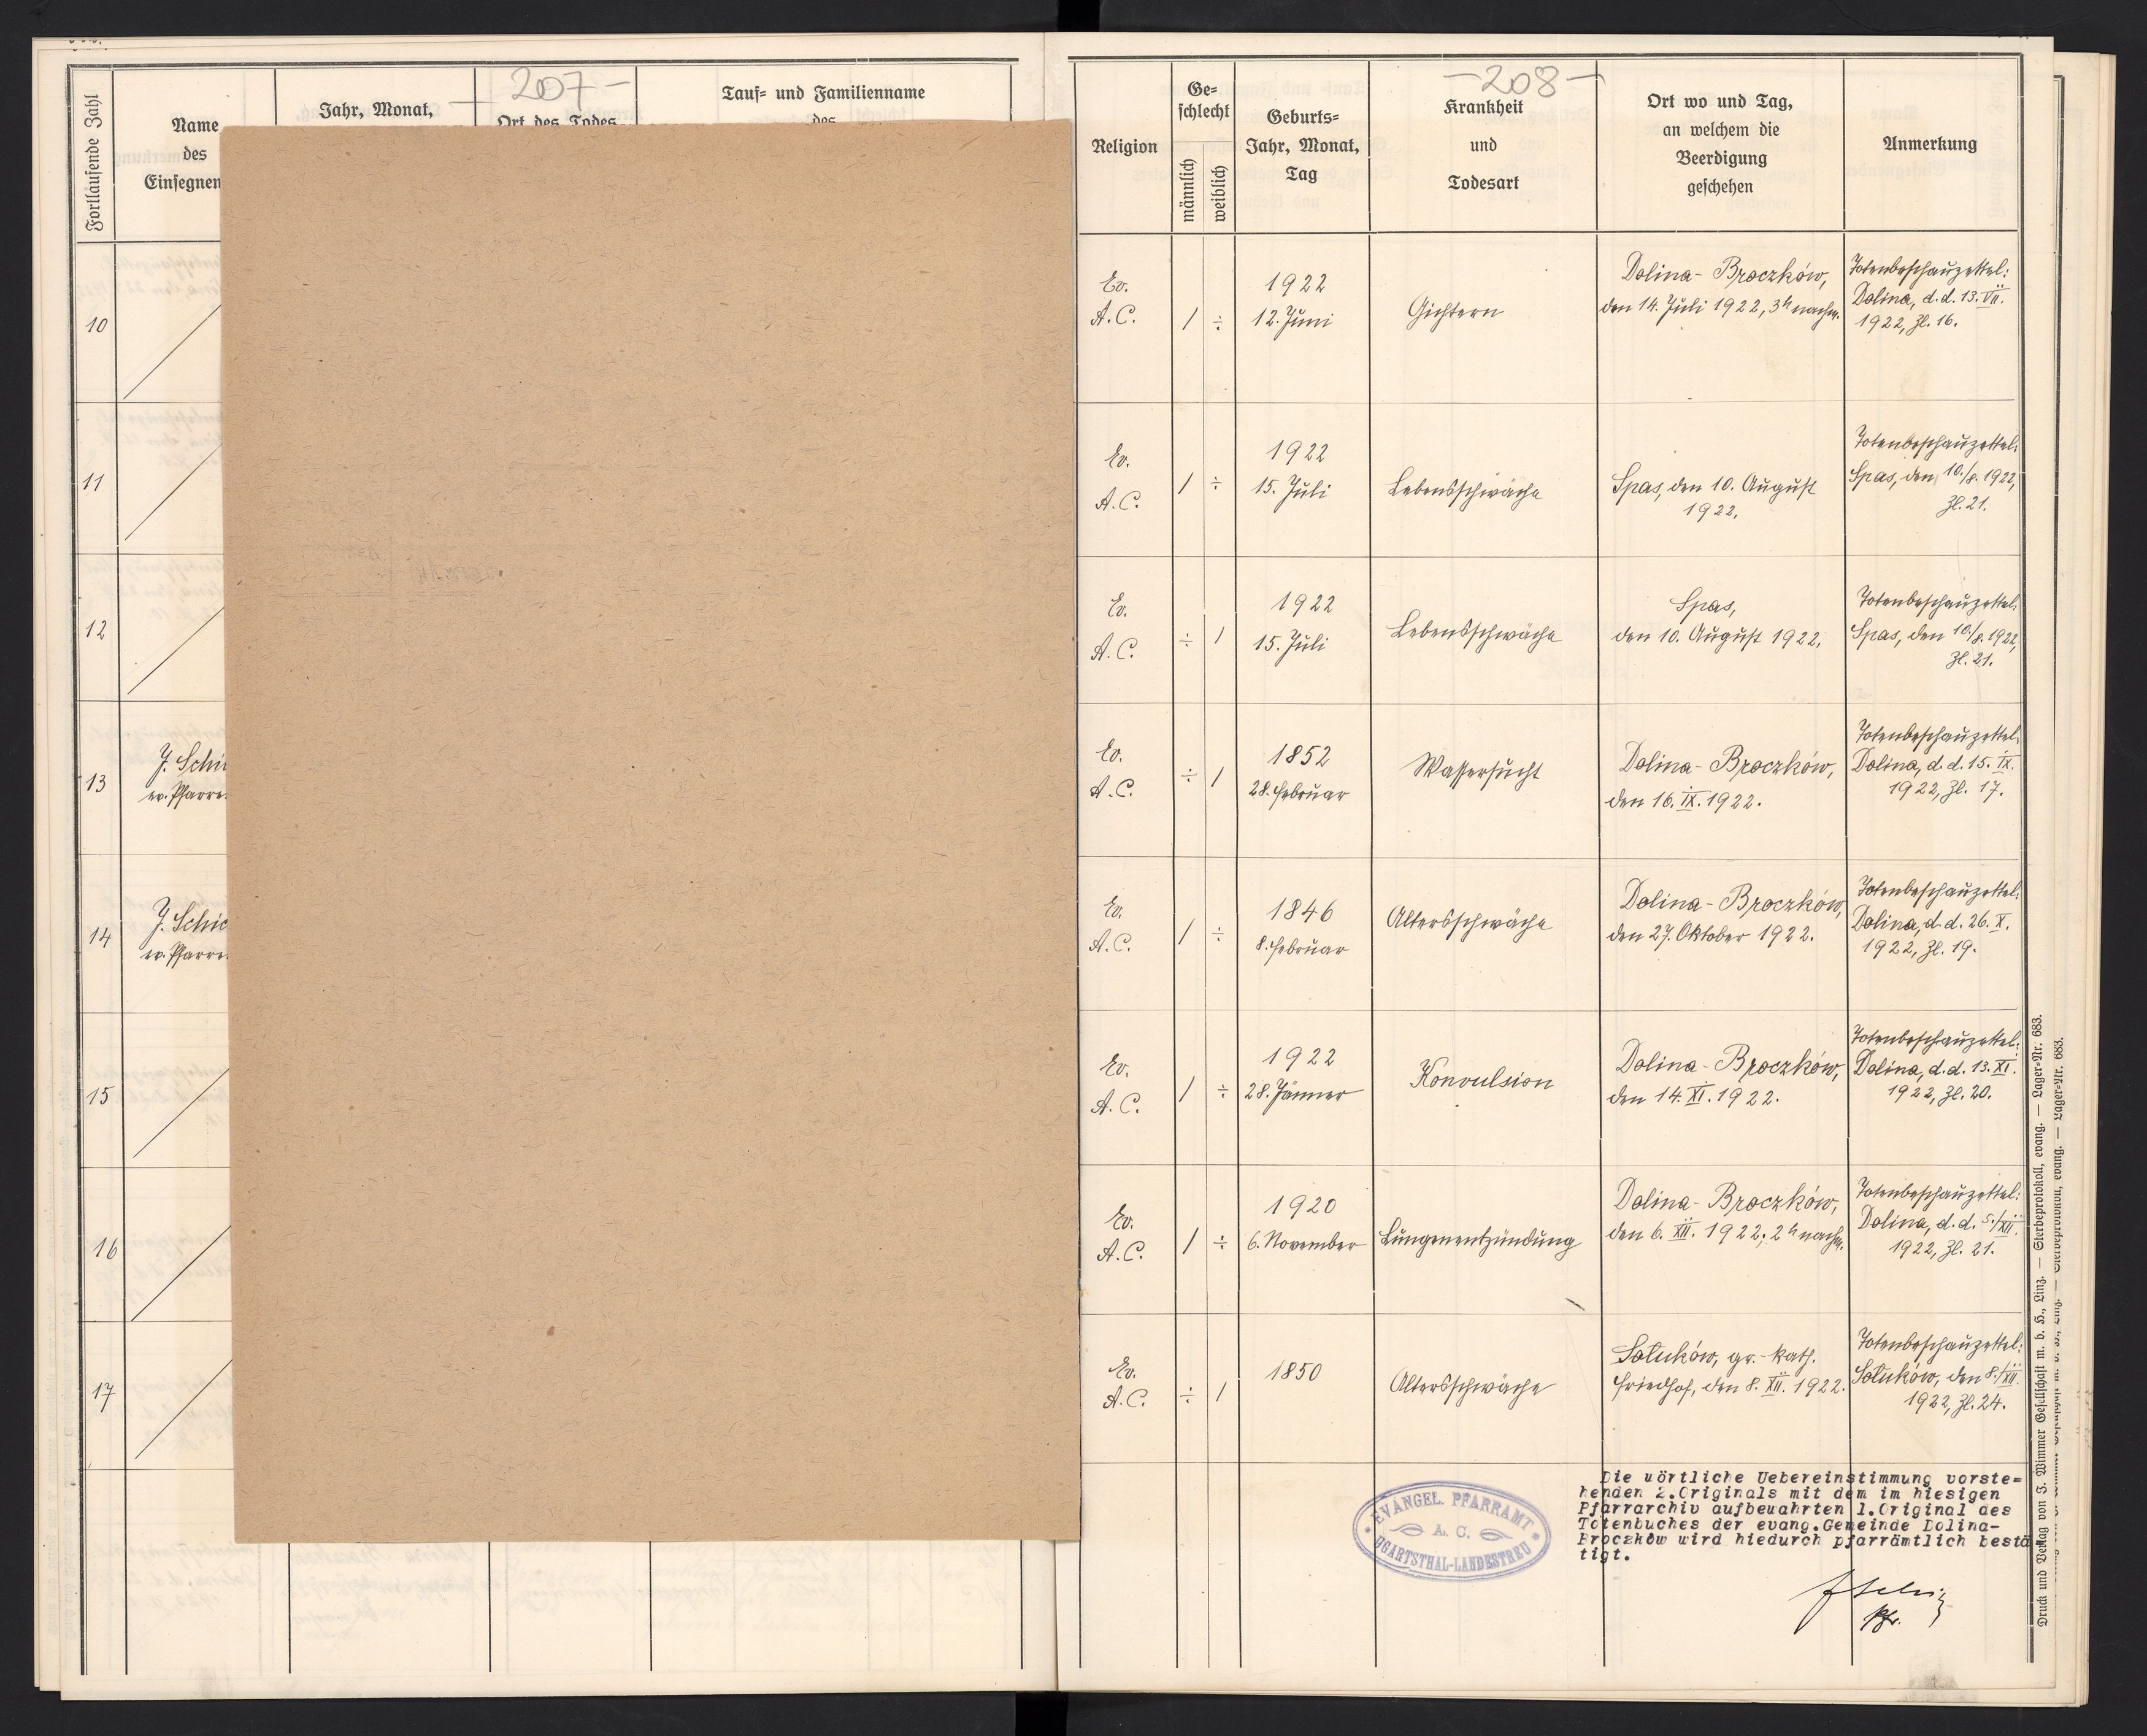 207 –
Fortlaufende Zahl
Name
des
Einsegnen
Jahr, Monat,
Ort des Todes
Tauf= und Familienname
des
10
11
12
13
J. Schi
ev. Pfarre
14
J. Schic
ev. Pfarre
15
16
17
– 208 –
Religion
Ge=
schlecht
männlich
weiblich
Geburts=
Jahr, Monat,
Tag
Krankheit
und
Todesart
Ort wo und Tag,
an welchem die
Beerdigung
geschehen
Anmerkung
Ev.
A. C.
/ ÷
1922
12. Juni
Gichtern
Dolina- Broczków,
den 14. Juli 1922, 3h nachm.
Totenbeschauzettel:
Dolina, d. d. 13. VII.
1922, Zl. 16.
Ev.
A. C.
/ ÷
1922
15. Juli
Lebensschwäche
Spas, den 10. August
1922.
Totenbeschauzettel:
Spas, den 10./8. 1922,
Zl. 21.
Ev.
A. C.
÷ /
1922
15. Juli
Lebensschwäche
Spas,
den 10. August 1922.
Totenbeschauzettel:
Spas, den 10./8. 1922,
Zl. 21.
Ev.
A. C.
÷ /
1852
28. Februar
Wassersucht
Dolina- Broczków,
den 16. IX. 1922.
Totenbeschauzettel:
Dolina, d. d. 15. IX.
1922, Zl. 17.
Ev.
A. C.
/ ÷
1846
8. Februar
Altersschwäche
Dolina- Broczków,
den 27. Oktober 1922.
Totenbeschauzettel:
Dolina, d. d. 26. X.
1922, Zl. 19.
Ev.
A. C.
/ ÷
1922
28. Jänner
Konvulsion
Dolina- Broczków,
den 14. XI. 1922.
Totenbeschauzettel:
Dolina, d. d. 13. XI.
1922, Zl. 20.
Ev.
A. C.
/ ÷
1920
6. November
Lungenentzündung
Dolina- Broczków,
den 6. XII. 1922, 2h nachm.
Totenbeschauzettel:
Dolina, d. d. 5./XII.
1922, Zl. 21.
Ev.
A. C.
÷ /
1850
Altersschwäche
Sołuków, gr.-kath.
Friedhof, den 8. XII. 1922.
Totenbeschauzettel:
Sołuków, den 8./XII.
1922, Zl. 24.
EVANGEL. PFARRAMT
A. C.
UGARTSTHAL-LANDESTREU
Die wörtliche Uebereinstimmung vorste=
henden 2.Originals mit dem im hiesigen
Pfarrarchiv aufbewahrten 1.Original des
Totenbuches der evang.Gemeinde Dolina-
Broczków wird hiedurch pfarrämtlich bestä
tigt.
Pfr.
Druck und Verlag von J. Wimmer Gesellschaft m. b. H., Linz. — Sterbeprotokoll, evang. — Lager=Nr. 683.
evang. — Lager=Nr. 683.